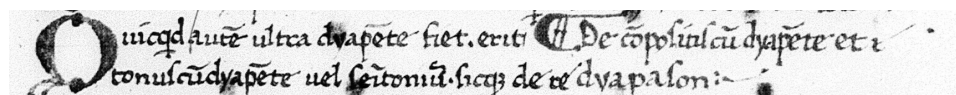 Quicq̃d autē ultra dyapēte fiet. erit ¶ De cōpositis cū dyapēte et
tonus cū dyapēte uel semitoniũ. sicq; de te dyapason: